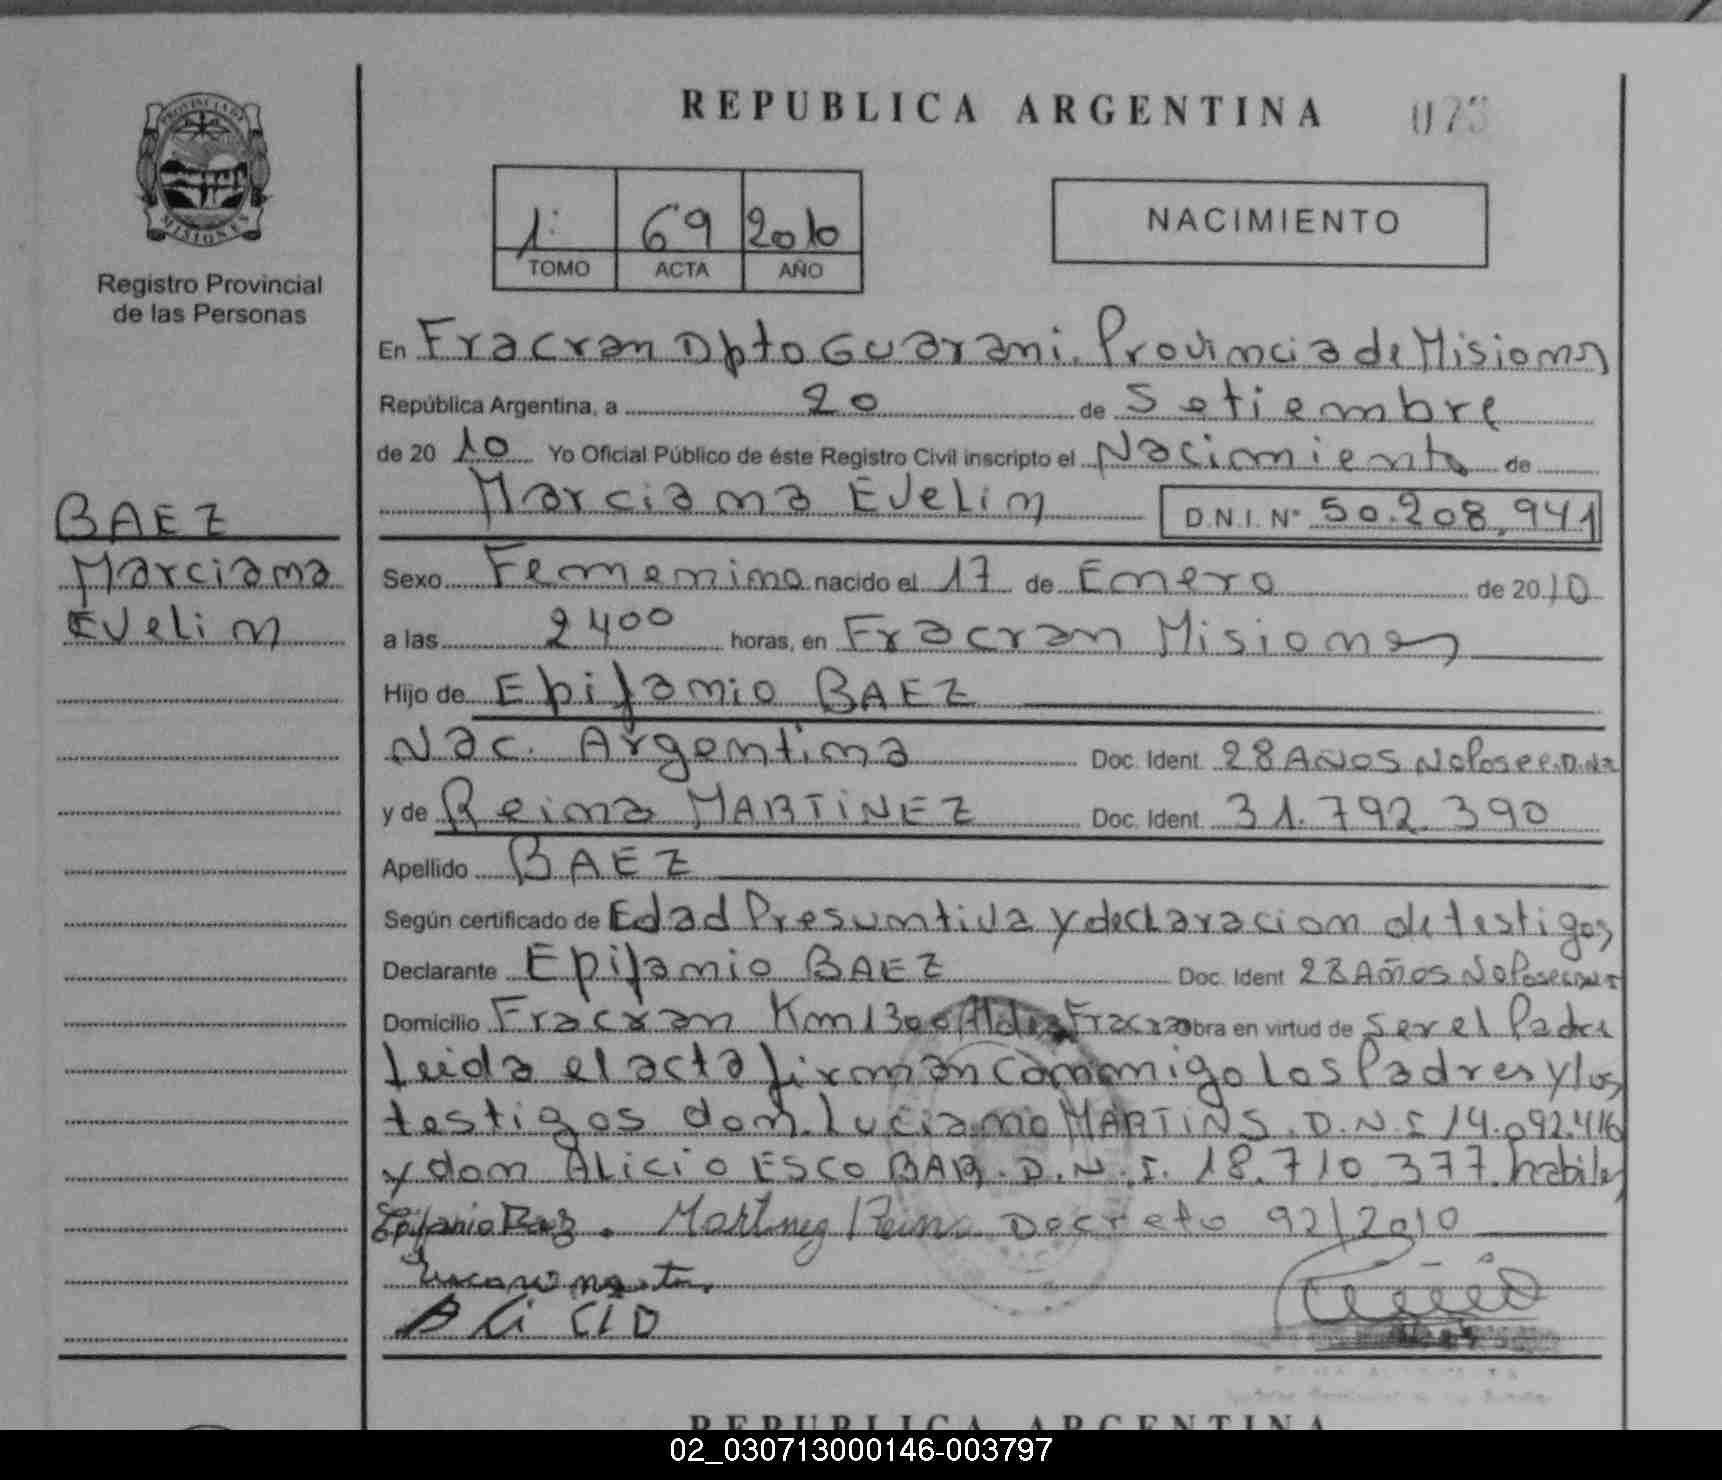 REPUBLICA ARGENTINA 073
PROVINCIA DE
MISIONES
Registro Provincial
de las Personas
1: 69 2010
TOMO ACTA AÑO
NACIMIENTO
En Fracran Dpto Guarani. Provincia de Misiones
República Argentina, a 20 de Setiembre
de 20 10 Yo Oficial Público de éste Registro Civil inscripto el Nacimiento de
Marciana Evelin D.N.I. Nº 50.208.941
BAEZ
Marciana
Evelin
Sexo Femenino nacido el 17 de Enero de 2010
a las 2400 horas, en Fracran Misiones
Hijo de Epifanio BAEZ
Nac. Argentina Doc. Ident. 28 AÑOS No Posee D.N.I
y de Reina MARTINEZ Doc. Ident. 31.792.390
Apellido BAEZ
Según certificado de Edad Presuntiva y declaracion de testigos
Declarante Epifanio BAEZ Doc. Ident 28 Años No Posee DNI
Domicilio Fracran Km 1300 Aldea Fracran obra en virtud de Ser el Padre
Leida el acta firman conmigo Los Padres y los
testigos don. Luciano MARTINS. D.N.I 14.092.416
y don ALicio ESCOBAR. D.N.I. 18.710.377. habiles
Epifanio Baez. Martinez Reina Decreto 92/2010
ALiCIO
REPUBLICA ARGENTINA
02_030713000146-003797